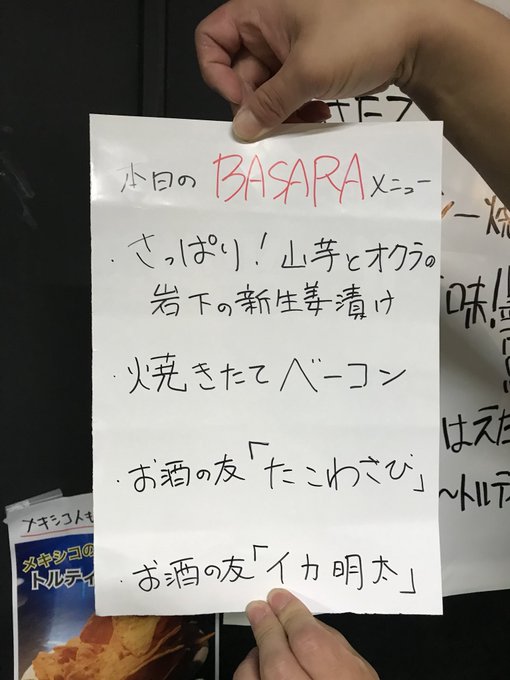 本日の BASARA メニュー
・さっぱり！山芋とオクラの
岩下の新生姜漬け
・焼きたてベーコン
・お酒の友「たこわさび」
・お酒の友「イカ明太」
メキシコ人も
メキシコの
トルティ
味!
はえた
〜トルテ